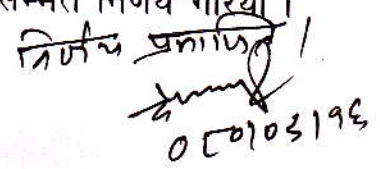 सम्मत निर्णय गरियो ।
निर्णय प्रमाणित ।
०८०।०३।१६